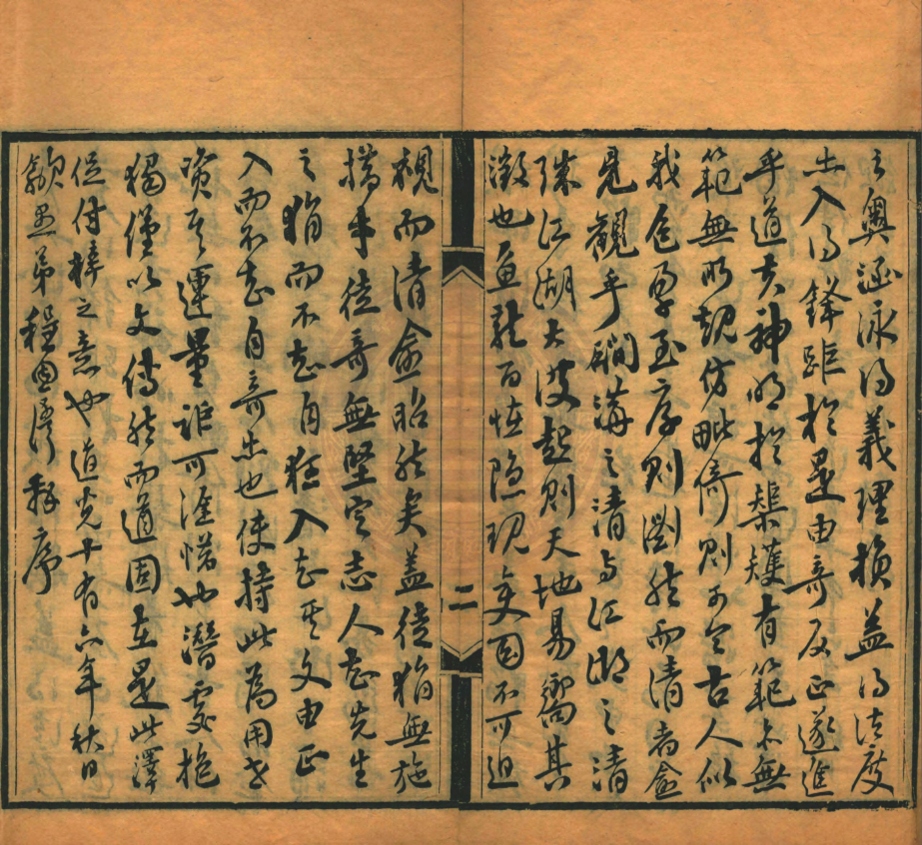 之奧涵泳得義理損益得法度
出入得鋒距於是由奇反正遂進
乎道其神明於榘矱有範亦無
範無所規仿毗倚則不與古人似
我包孕至厚則淵然而清者愈
見觀乎磵溝之清与江湖之清
殊江湖大波起則天地易嚮其
澂也魚龍百怪隐現矣固不可迫
視而清愈昭然矣蓋徒狷無施
擣手徒奇無堅定志人知先生
之狷而不知自狂入知其文由正
入而不知自奇出也使持此為用世
資其運量詎可涯惜也潛處抱
獨僅以文傳然而道固在是此澤
促付梓之意也道光十有六年秋日
歙愚弟程恩澤拜序
二